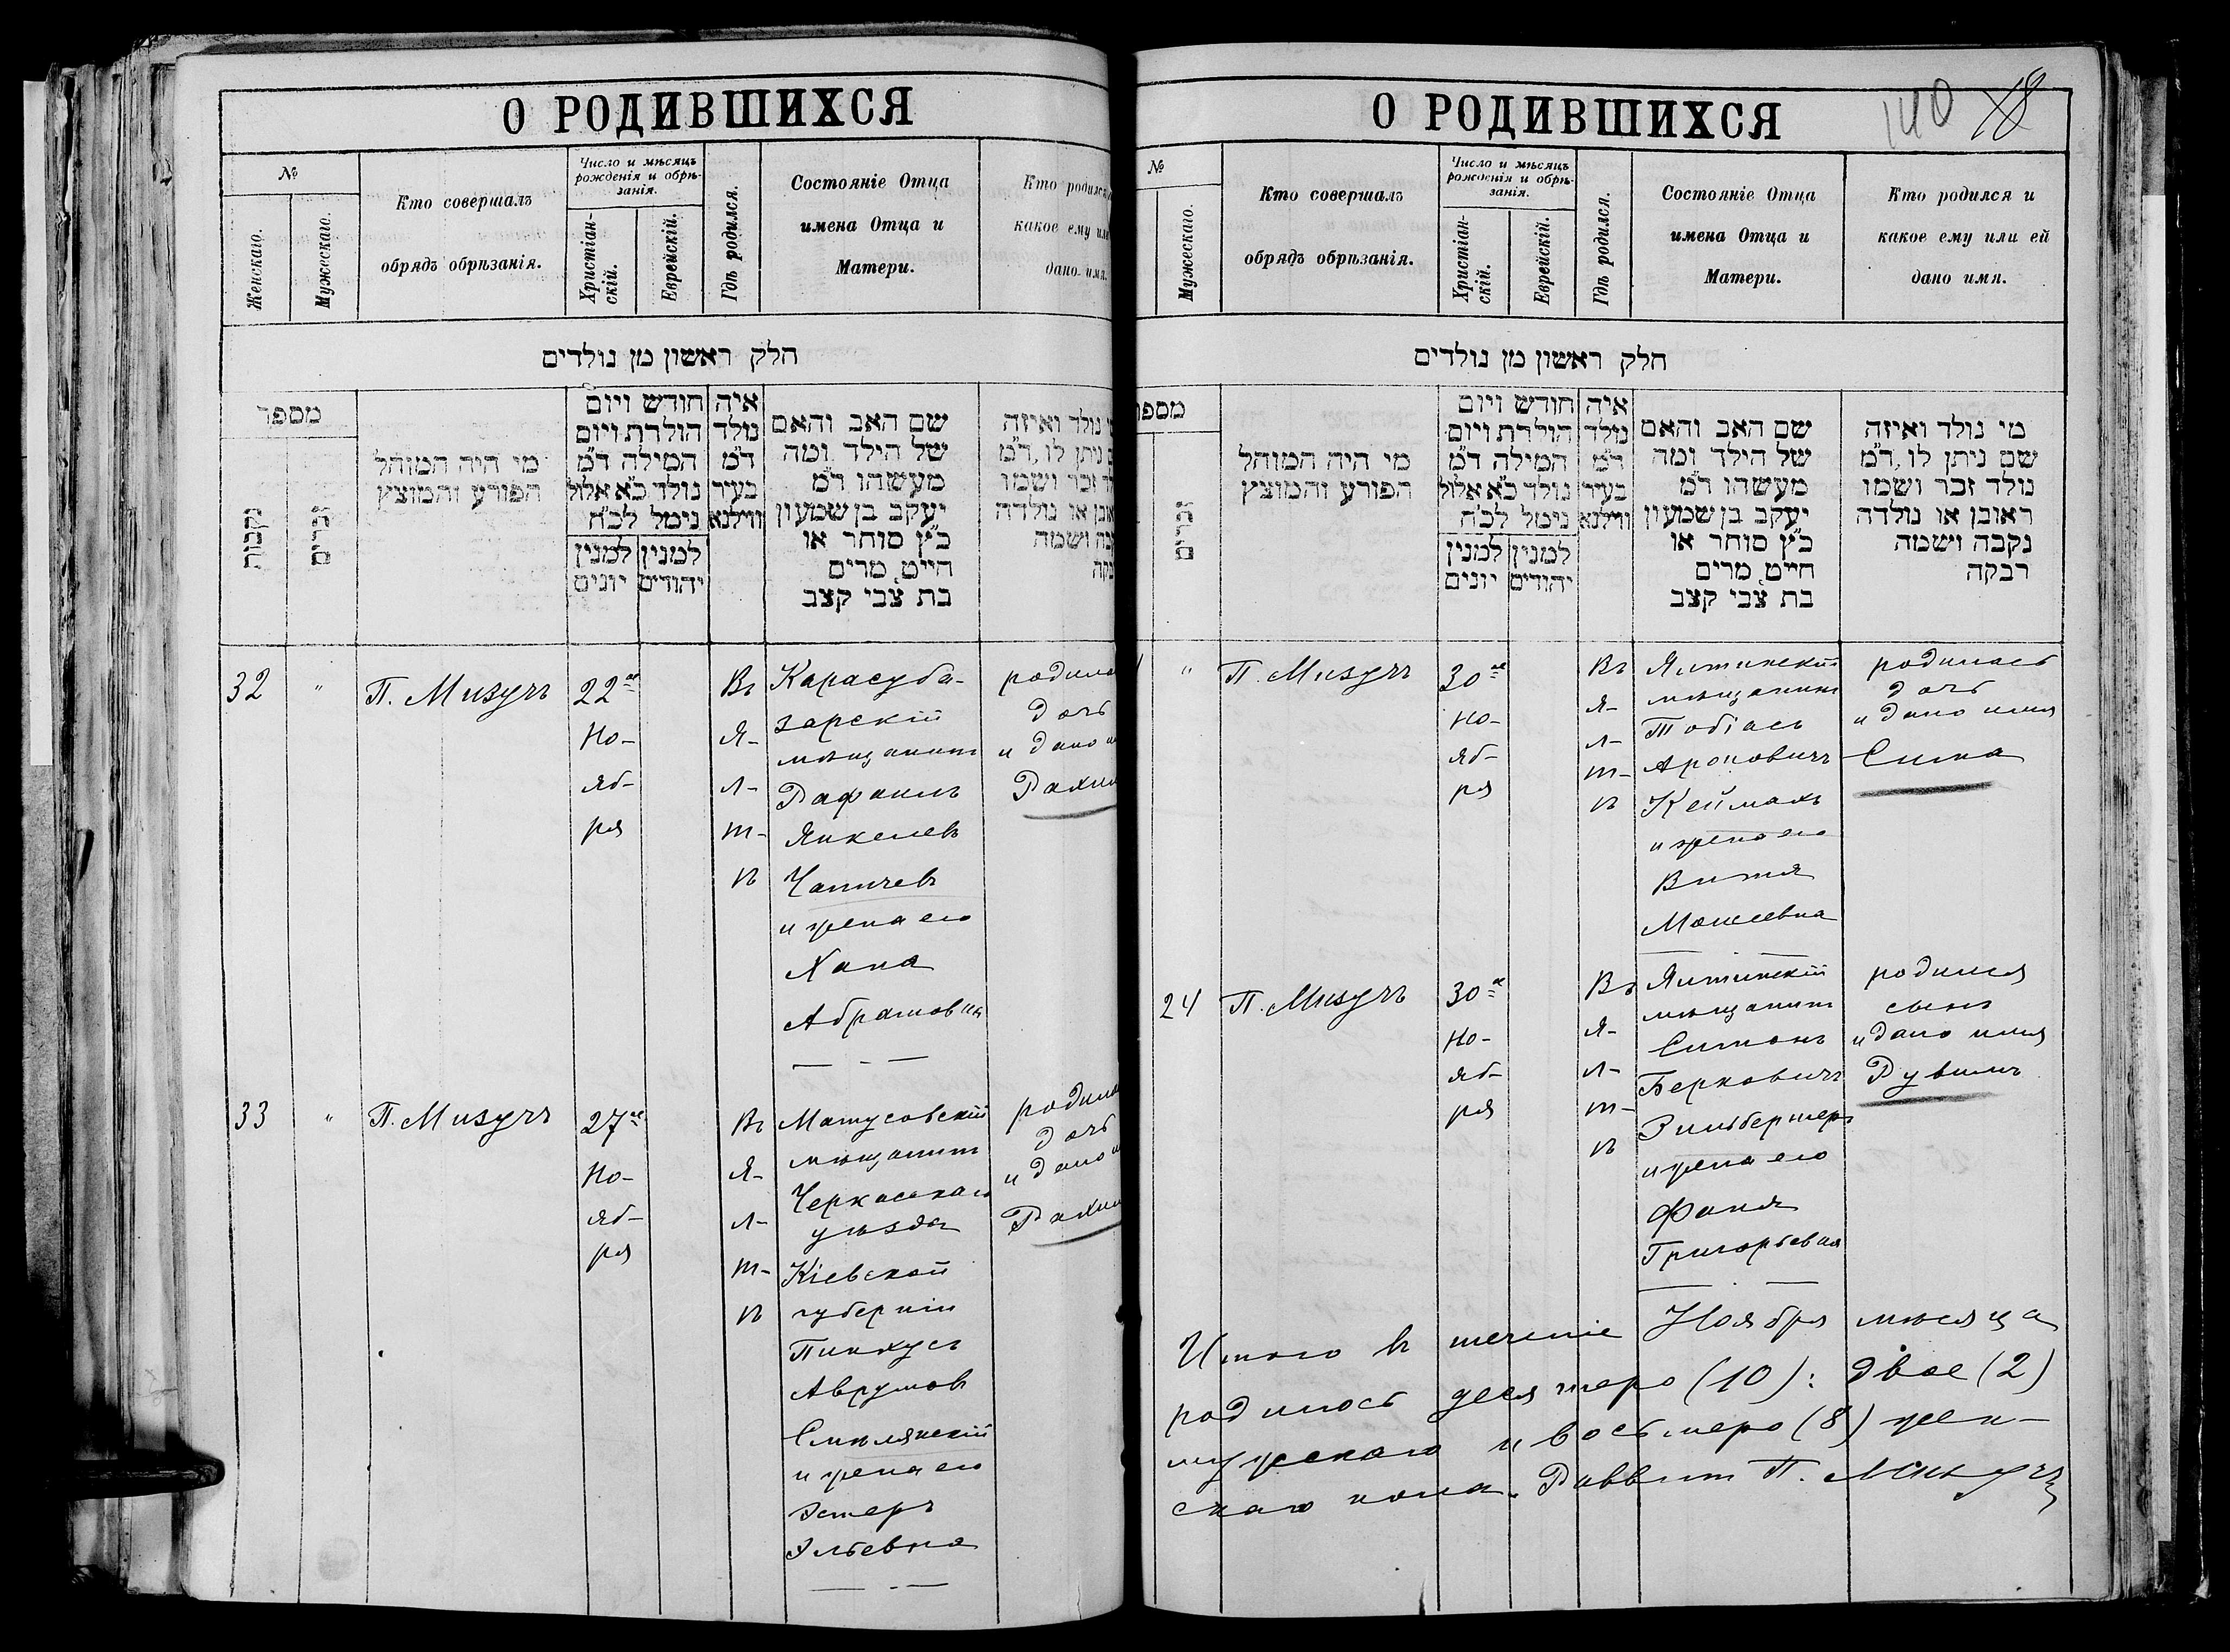 О РОДИВШИХСЯ
№
Женскаго.
Мужескаго.
Кто совершалъ
обрядъ обрѣзанія.
Число и мѣсяцъ
рожденія и обрѣ-
занія.
Христіан-
скій.
Еврейскій.
Гдѣ родился.
Состояніе Отца
имена Отца и
Матери.
Кто
какое ему
дано
חלק ראשון מן נולדים
מספר
נקבות
זכרים
מי היה המוהל
הפורע והמוצץ
חודש ויום
הולדת ויום
המילה ד״מ
נולד כ״א אלול
נימל לכ״ח
למנין
יונים
למנין
יהודים
איה
נולד
ד״מ
בעיר
ווילנא
שם האב והאם
של הילד ומה
מעשהו ד״מ
יעקב בן שמעון
כ״ץ סוחר או
חייט, מרים
בת צבי קצב
נולד ואיזה
ניתן לו, ד״מ
זכר ושמו
או נולדה
ושמה
32
"
П. Мизучъ
22го
Но-
яб-
ря
Въ
Я-
л-
т-
ѣ
Карасуба-
зарскій
мѣщанинъ
Рафаилъ
Янкелевъ
Чапичевъ
и жена его
Хана
Абрамовна
дочь
и дано
33
"
П. Мизучъ
27го
Но-
яб-
ря
Въ
Я-
л-
т-
ѣ
Матусовскій
мѣщанинъ
Черкасскаго
уѣзда
Кіевской
губерніи
Пинхусъ
Аврумовъ
Смѣлянскій
и жена его
Эстеръ
Эльевна
дочь
и дано
О РОДИВШИХСЯ
140 18
№
Мужескаго.
Кто совершалъ
обрядъ обрѣзанія.
Число и мѣсяцъ
рожденія и обрѣ-
занія.
Христіан-
скій.
Еврейскій.
Гдѣ родился.
Состояніе Отца
имена Отца и
Матери.
Кто родился и
какое ему или ей
дано имя.
חלק ראשון מן נולדים
זכרים
מי היה המוהל
הפורע והמוצץ
חודש ויום
הולדת ויום
המילה ד״מ
נולד כ״א אלול
נימל לכ״ח
למנין
יונים
למנין
יהודים
איה
נולד
ד״מ
בעיר
ווילנא
שם האב והאם
של הילד ומה
מעשהו ד״מ
יעקב בן שמעון
כ״ץ סוחר או
חייט, מרים
בת צבי קצב
מי נולד ואיזה
שם ניתן לו, ד״מ
נולד זכר ושמו
ראובן או נולדה
נקבה ושמה
רבקה
"
П. Мизучъ
30го
Но-
яб-
ря
Въ
Я-
л-
т-
ѣ
Ялтинскій
мѣщанинъ
Тобіасъ
Ароновичъ
Кеймахъ
и жена его
Витя
Мошеевна
родилась
дочь
и дано имя
Сима
24
П. Мизучъ
30го
Но-
яб-
ря
Въ
Я-
л-
т-
ѣ
Ялтинскій
мѣщанинъ
Симонъ
Берковичъ
и жена его
Фаня
Григорьевна
родился
сынъ
и дано имя
Рувимъ
Итого въ теченіе Ноября мѣсяца
родилось десятеро (10): двое (2)
мужескаго и восьмеро (8) жен-
скаго пола. Раввинъ П. Мизучъ